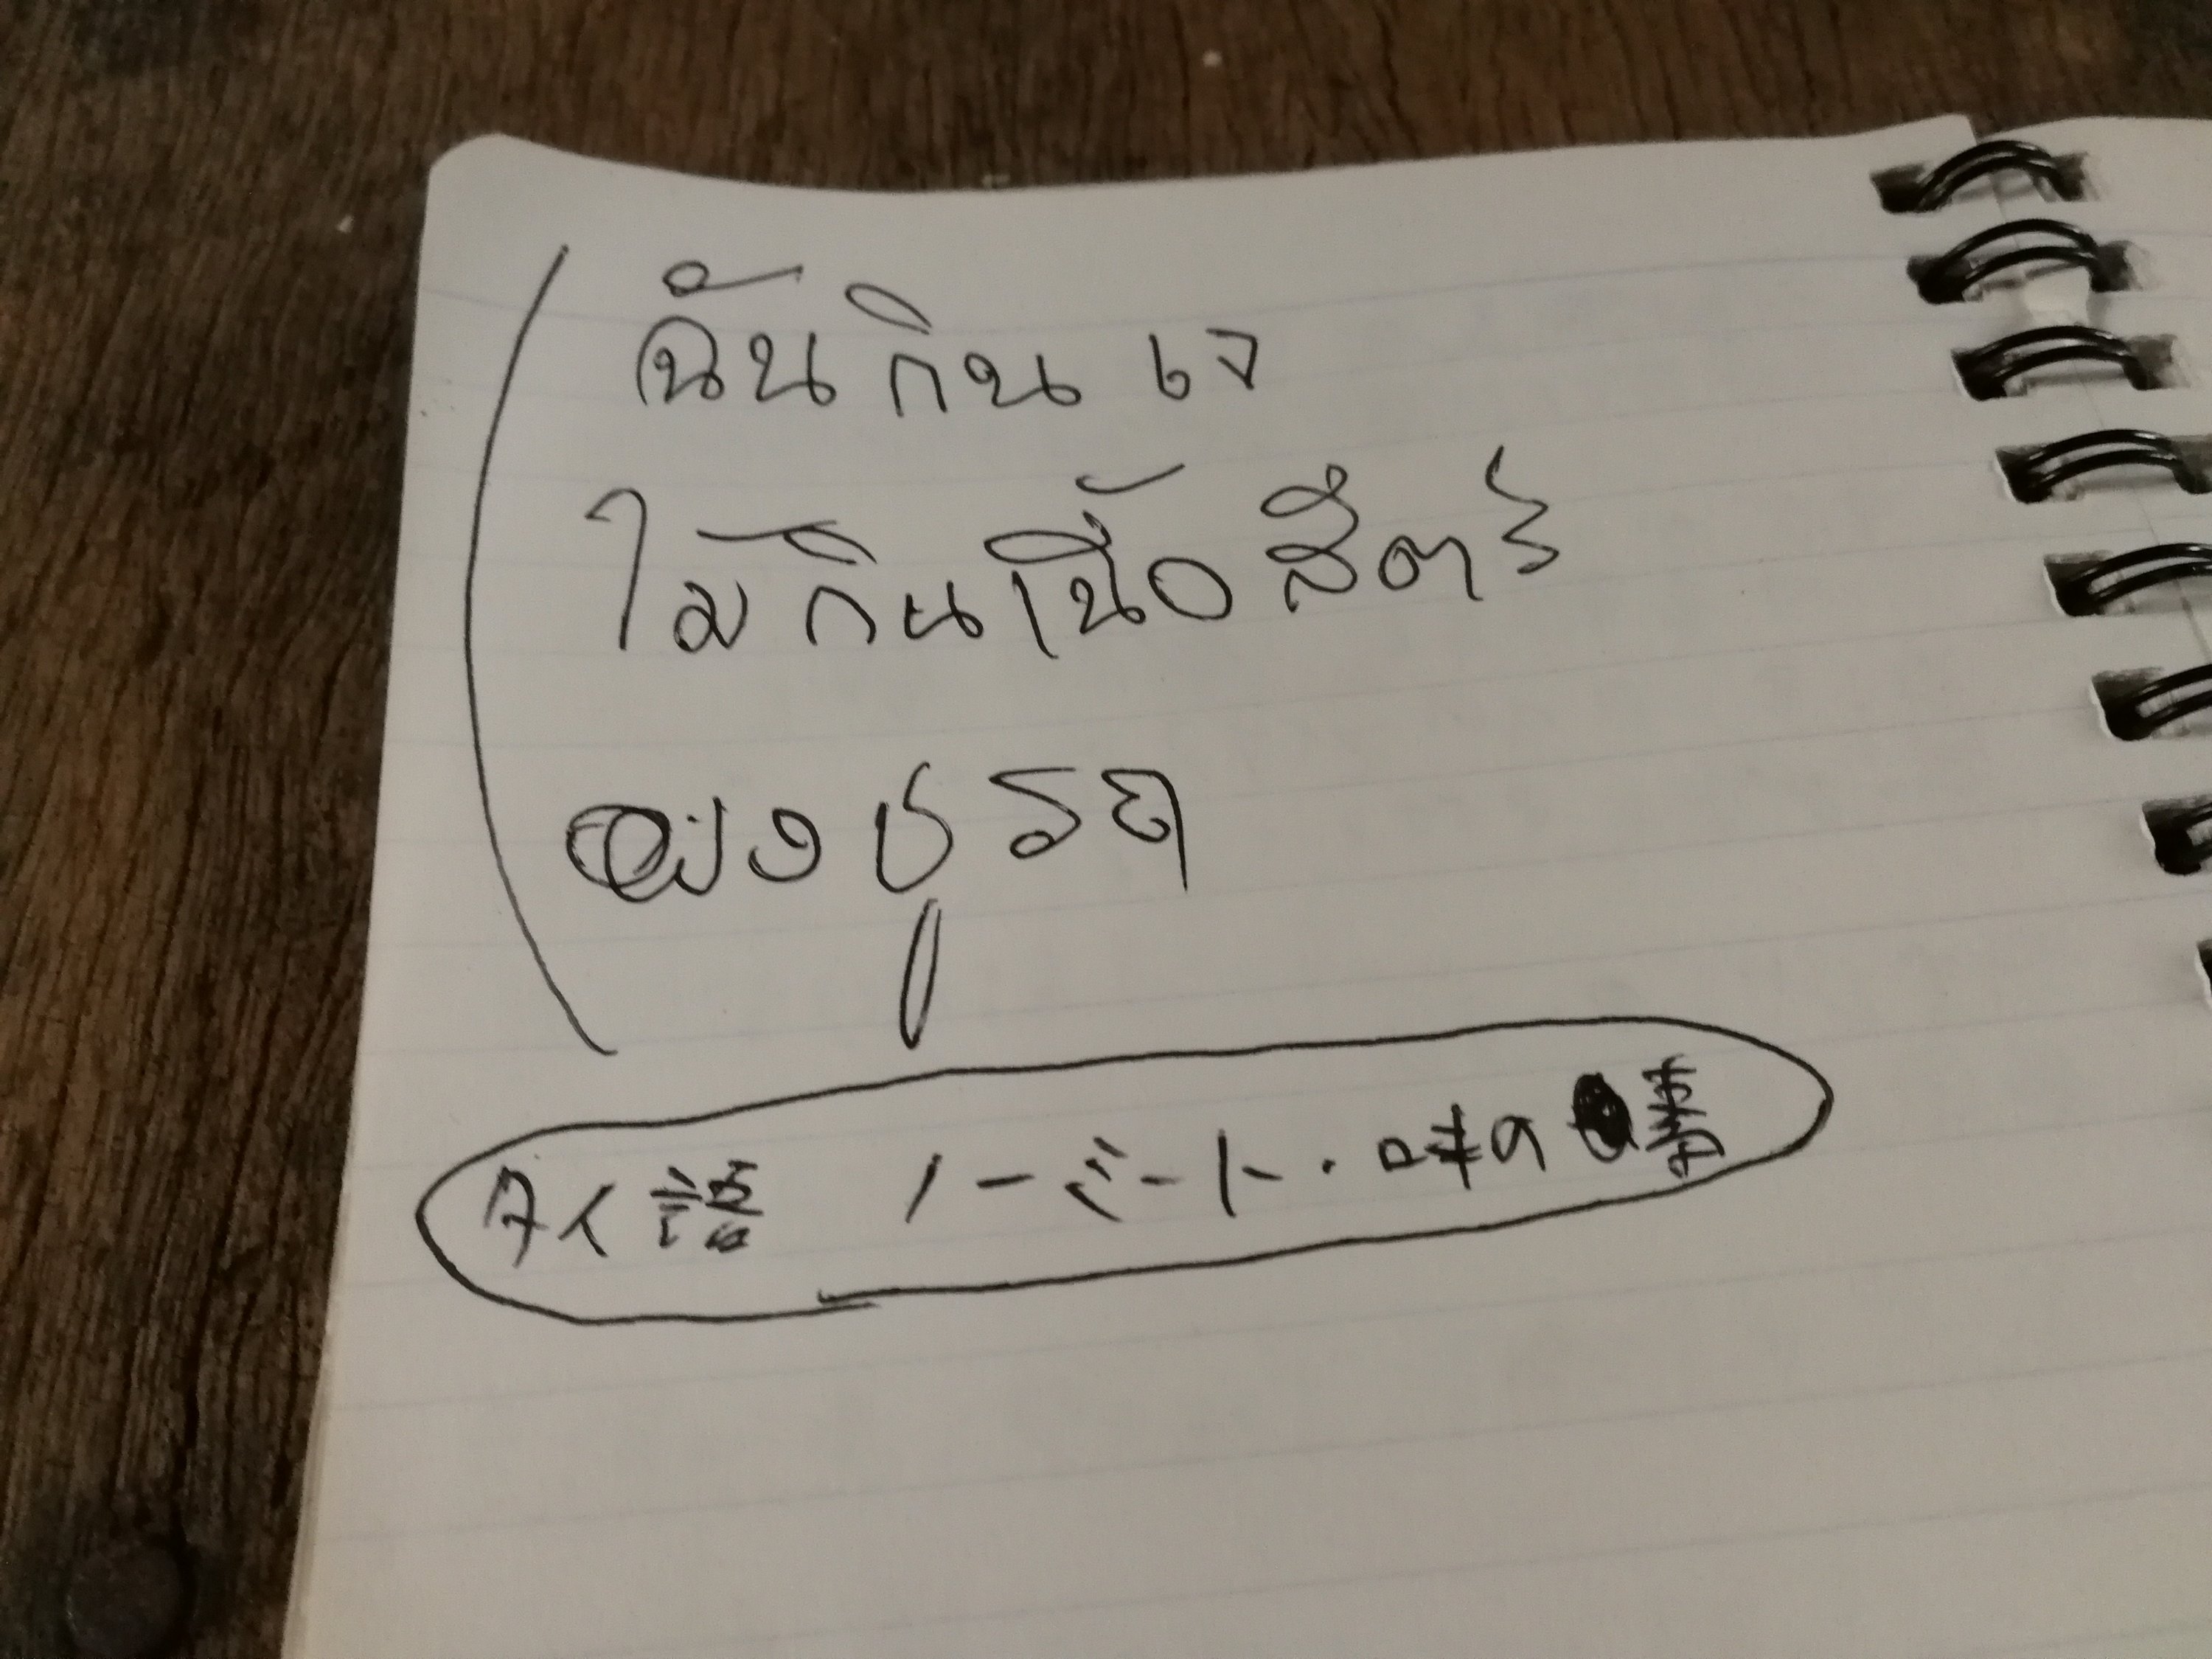 ฉันกินเจ
ไม่กินเนื้อสัตว์
ผงชูรส
タイ語 ノーミート・味の素